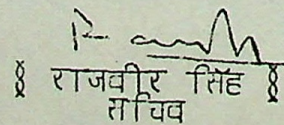 राजवीर सिंह
सचिव